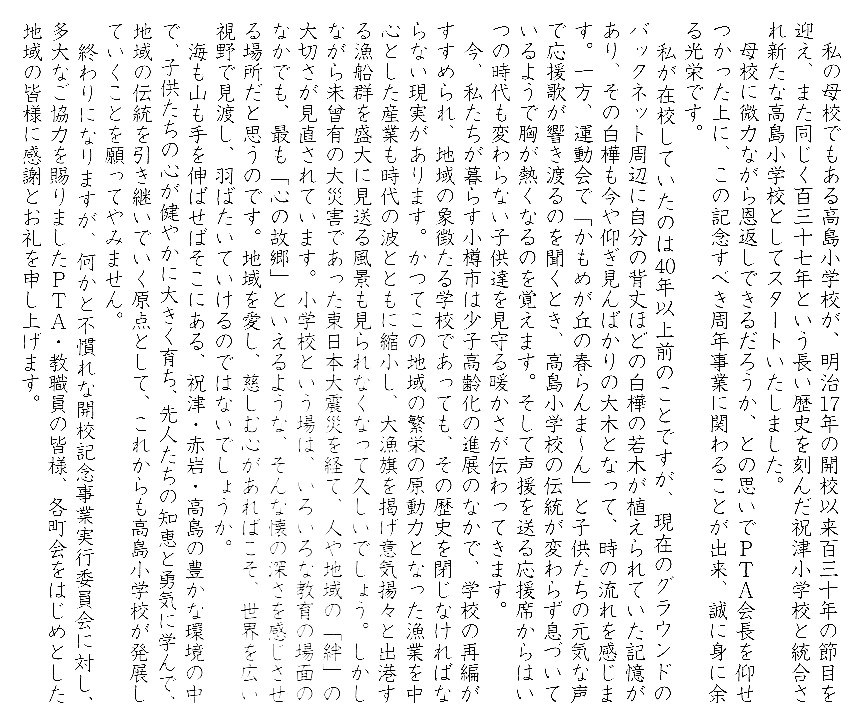 私の母校でもある高島小学校が、明治17年の開校以来百三十年の節目を
迎え、また同じく百三十七年という長い歴史を刻んだ祝津小学校と統合さ
れ新たな高島小学校としてスタートいたしました。
　母校に微力ながら恩返しできるだろうか、との思いでＰＴＡ会長を仰せ
つかった上に、この記念すべき周年事業に関わることが出来、誠に身に余
る光栄です。
　私が在校していたのは40年以上前のことですが、現在のグラウンドの
バックネット周辺に自分の背丈ほどの白樺の若木が植えられていた記憶が
あり、その白樺も今や仰ぎ見んばかりの大木となって、時の流れを感じま
す。一方、運動会で「かもめが丘の春らんま～ん」と子供たちの元気な声
で応援歌が響き渡るのを聞くとき、高島小学校の伝統が変わらず息づいて
いるようで胸が熱くなるのを覚えます。そして声援を送る応援席からはい
つの時代も変わらない子供達を見守る暖かさが伝わってきます。
　今、私たちが暮らす小樽市は少子高齢化の進展のなかで、学校の再編が
すすめられ、地域の象徴たる学校であっても、その歴史を閉じなければな
らない現実があります。かつてこの地域の繁栄の原動力となった漁業を中
心とした産業も時代の波とともに縮小し、大漁旗を掲げ意気揚々と出港す
る漁船群を盛大に見送る風景も見られなくなって久しいでしょう。しかし
ながら未曾有の大災害であった東日本大震災を経て、人や地域の「絆」の
大切さが見直されています。小学校という場は、いろいろな教育の場面の
なかでも、最も「心の故郷」といえるような、そんな懐の深さを感じさせ
る場所だと思うのです。地域を愛し、慈しむ心があればこそ、世界を広い
視野で見渡し、羽ばたいていけるのではないでしょうか。
　海も山も手を伸ばせばそこにある、祝津・赤岩・高島の豊かな環境の中
で、子供たちの心が健やかに大きく育ち、先人たちの知恵と勇気に学んで、
地域の伝統を引き継いでいく原点として、これからも高島小学校が発展し
ていくことを願ってやみません。
　終わりになりますが、何かと不慣れな開校記念事業実行委員会に対し、
多大なご協力を賜りましたＰＴＡ・教職員の皆様、各町会をはじめとした
地域の皆様に感謝とお礼を申し上げます。